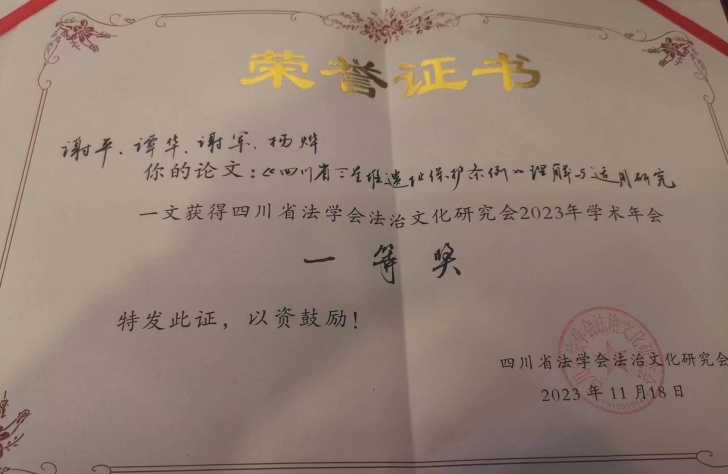 荣誉证书
谢平、谭华、谢军、杨烨
你的论文：《四川省三星堆遗址保护条例》理解与适用研究
一文获得四川省法学会法治文化研究会2023年学术年会
一等奖
特发此证，以资鼓励！
四川省法学会法治文化研究会
2023年11月18日